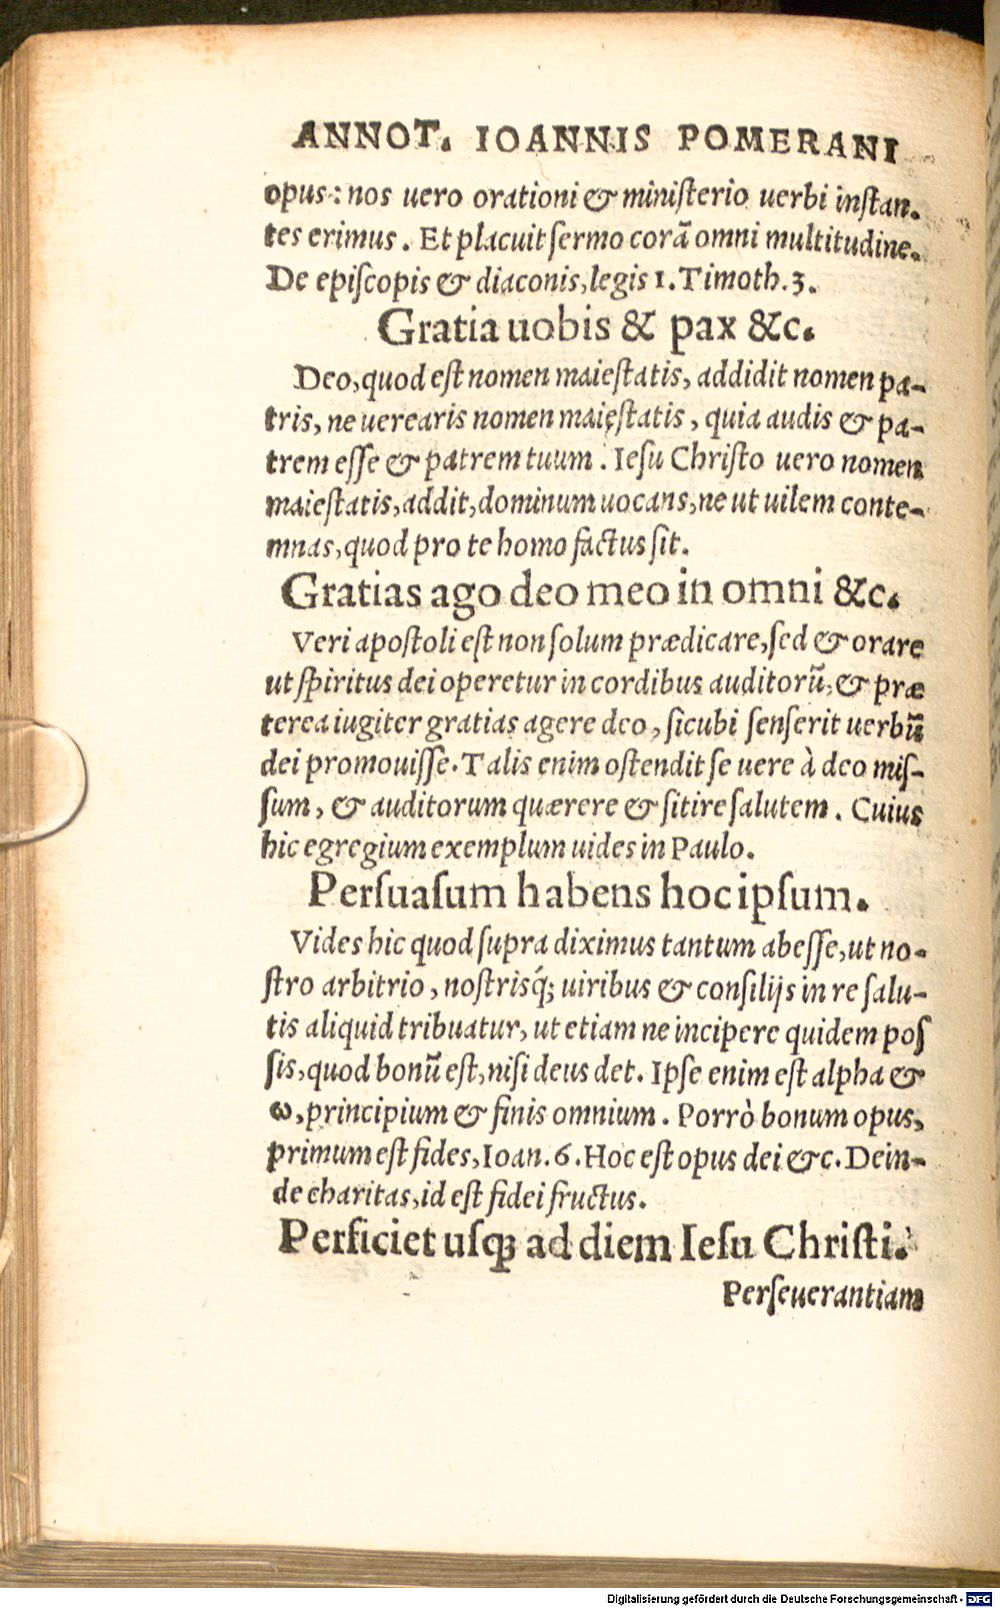 ANNOT. IOANNIS POMERANI
opus: nos uero orationi & ministerio uerbi instan-
tes erimus. Et placuit sermo corã omni multitudine.
De episcopis & diaconis, legis 1. Timoth. 3.
Gratia uobis & pax &c.
Deo, quod est nomen maiestatis, addidit nomen pa-
tris, ne uerearis nomen maiestatis, quia audis & pa-
trem esse & patrem tuum. Iesu Christo uero nomen
maiestatis, addit, dominum uocans, ne ut uilem conte-
mnas, quod pro te homo factus sit.
Gratias ago deo meo in omni &c.
Veri apostoli est non solum prædicare, sed & orare
ut spiritus dei operetur in cordibus auditorũ, & præ
terea iugiter gratias agere deo, sicubi senserit uerbũ
dei promouisse. Talis enim ostendit se uere à deo mis-
sum, & auditorum quærere & sitire salutem. Cuius
hic egregium exemplum uides in Paulo.
Persuasum habens hoc ipsum.
Vides hic quod supra diximus tantum abesse, ut no-
stro arbitrio, nostrisq́; uiribus & consilijs in re salu-
tis aliquid tribuatur, ut etiam ne incipere quidem pos
sis, quod bonũ est, nisi deus det. Ipse enim est alpha &
ω, principium & finis omnium. Porrò bonum opus,
primum est fides, Ioan. 6. Hoc est opus dei &c. Dein-
de charitas, id est fidei fructus.
Perficiet usq; ad diem Iesu Christi.
Perseuerantiam
Digitalisierung gefördert durch die Deutsche Forschungsgemeinschaft - DFG